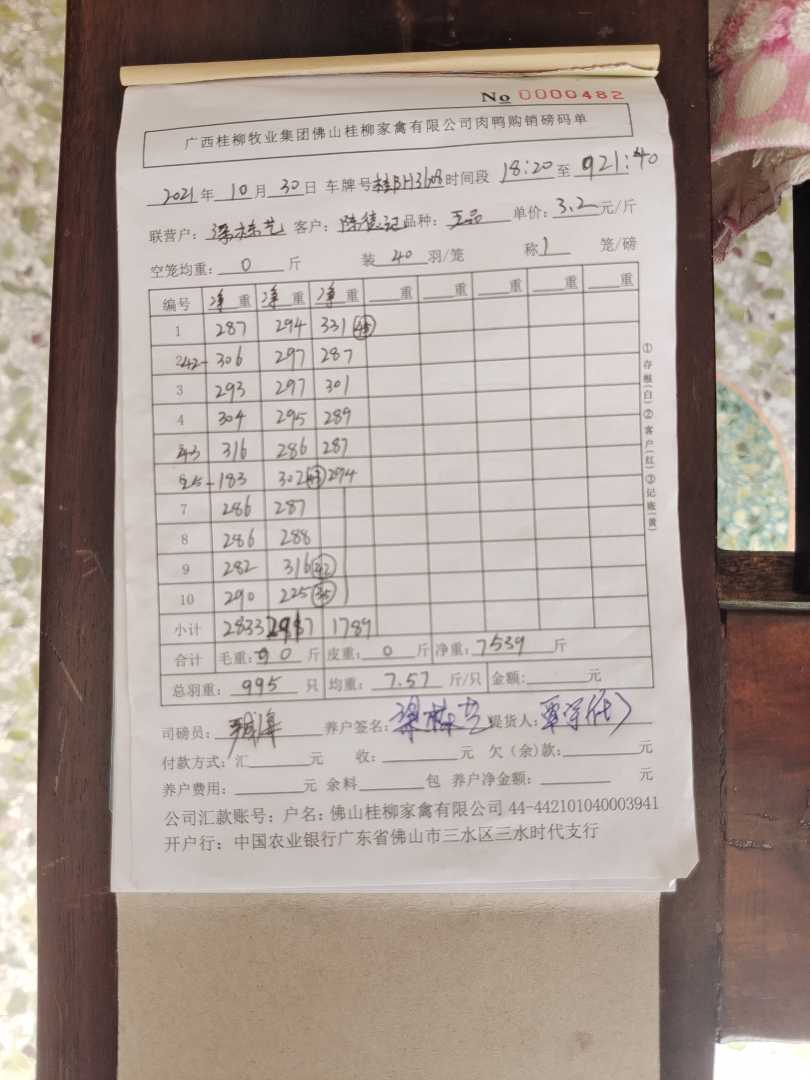 No 0000482
广西桂柳牧业集团佛山桂柳家禽有限公司肉鸭购销磅码单
2021年10月30日 车牌号 时间段 18:20至21:40
联营户: 梁栋艺 客户: 陈德记 品种: 单价: 3.2元/斤
空笼均重: 0 斤 装 40 羽/笼 称 1 笼/磅
编号 净重 净重 净重 重 重 重 重 重
1 287 294 331 45
42- 306 297 287
3 293 297 301
4 304 295 289
43 316 286 287
25- 183 302 43 294
7 286 287
8 286 288
9 282 316 42
10 290 225 35
小计 2833 1789
合计 毛重: 0 斤 皮重: 0 斤 净重: 7539 斤
总羽重: 995 只 均重: 7.57 斤/只 金额: 元
司磅员: 养户签名: 梁栋艺 提货人:
付款方式: 汇 元 收: 元 欠(余)款: 元
养户费用: 元 余料 包 养户净金额: 元
公司汇款账号: 户名: 佛山桂柳家禽有限公司 44-442101040003941
开户行: 中国农业银行广东省佛山市三水区三水时代支行
①存根(白)②客户(红)③记账(黄)